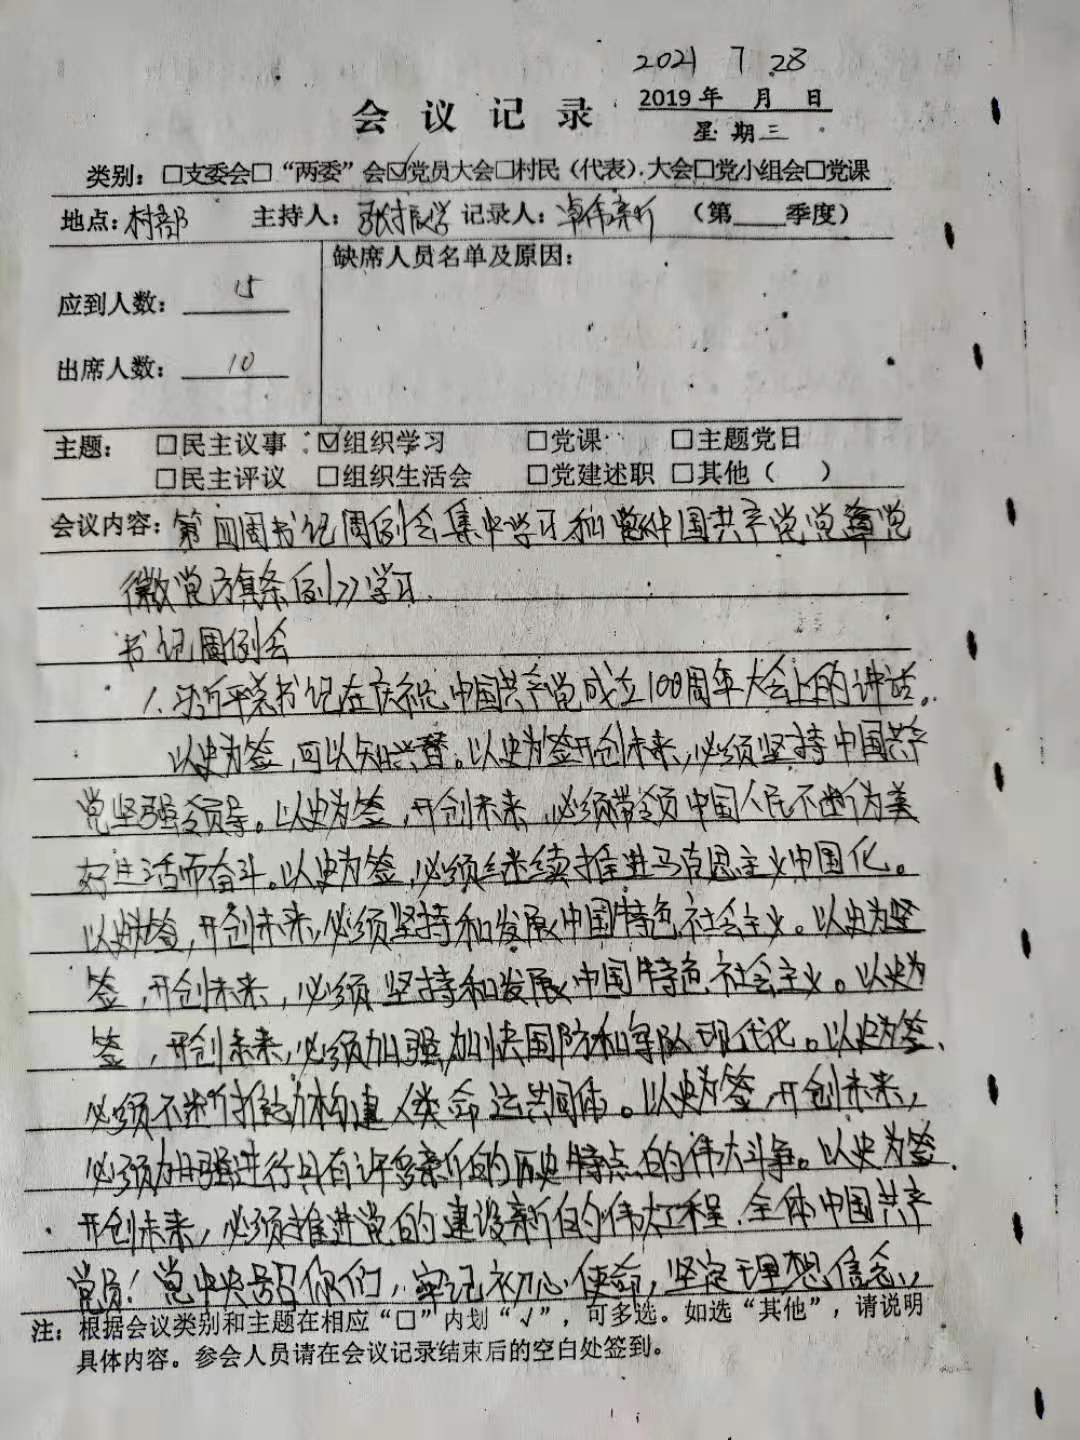 2021 7 28
会 议 记 录 2019年 月 日
星期三
类别：□支委会□“两委”会☑党员大会□村民（代表）大会□党小组会□党课
地点：村部 主持人：张振学 记录人：卓伟新（第 季度）
缺席人员名单及原因：
应到人数：15
出席人数：10
主题： □民主议事 ☑组织学习 □党课 □主题党日
□民主评议 □组织生活会 □党建述职 □其他（ ）
会议内容：第四周书记周例会集中学习和中国共产党党章党
徽党旗条例》学习.
书记周例会
1.习近平总书记在庆祝中国共产党成立100周年大会上的讲话。
以史为签,可以知兴替。以史为签开创未来,必须坚持中国共产
党坚强领导。以史为签,开创未来,必须带领中国人民不断为美
好生活而奋斗。以史为签,必须继续推进马克思主义中国化。
以史为签,开创未来,必须坚持和发展中国特色社会主义。以史为
签,开创未来,必须坚持和发展中国特色社会主义。以史为
签,开创未来,必须加强加快国防和军队现代化。以史为签、
必须不断推动构建人类命运共同体。以史为签,开创未来,
必须加强进行具有许多新的历史特点的伟大斗争。以史为签.
开创未来,必须推进党的建设新的伟大工程.全体中国共产
党员!党中央号召你们,牢记初心使命,坚定理想信念,
注：根据会议类别和主题在相应“□”内划“√”，可多选。如选“其他”，请说明
具体内容。参会人员请在会议记录结束后的空白处签到。